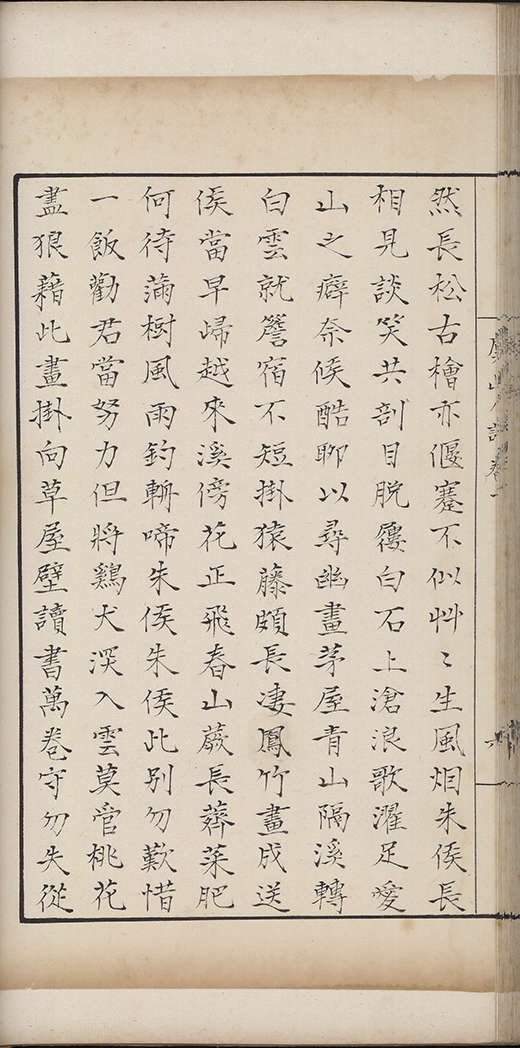 然長松古檜亦偃蹇不似艸〻生風烟朱侯長
相見談笑共剖目脫屨白石上滄浪歌濯足愛
山之癖奈侯酷聊以尋幽畫茅屋青山隔溪轉
白雲就簷宿不短掛猿藤頗長淒鳳竹畫成送
侯當早歸越來溪傍花正飛春山蕨長薺菜肥
何待滿樹風雨鈎輈啼朱侯朱侯此別勿歎惜
一飯勸君當努力但將鷄犬深入雲莫管桃花
盡狼藉此畫掛向草屋壁讀書萬卷守勿失從
卷一
六